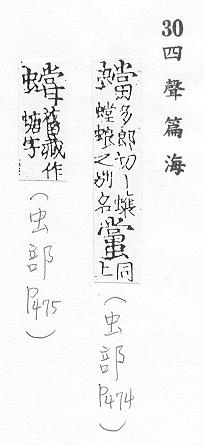 30 四聲篇海
蟷多郎切丨蠰螳蜋之别名 同上
(虫部 P474)
舊藏作螗字
(虫部 P475)